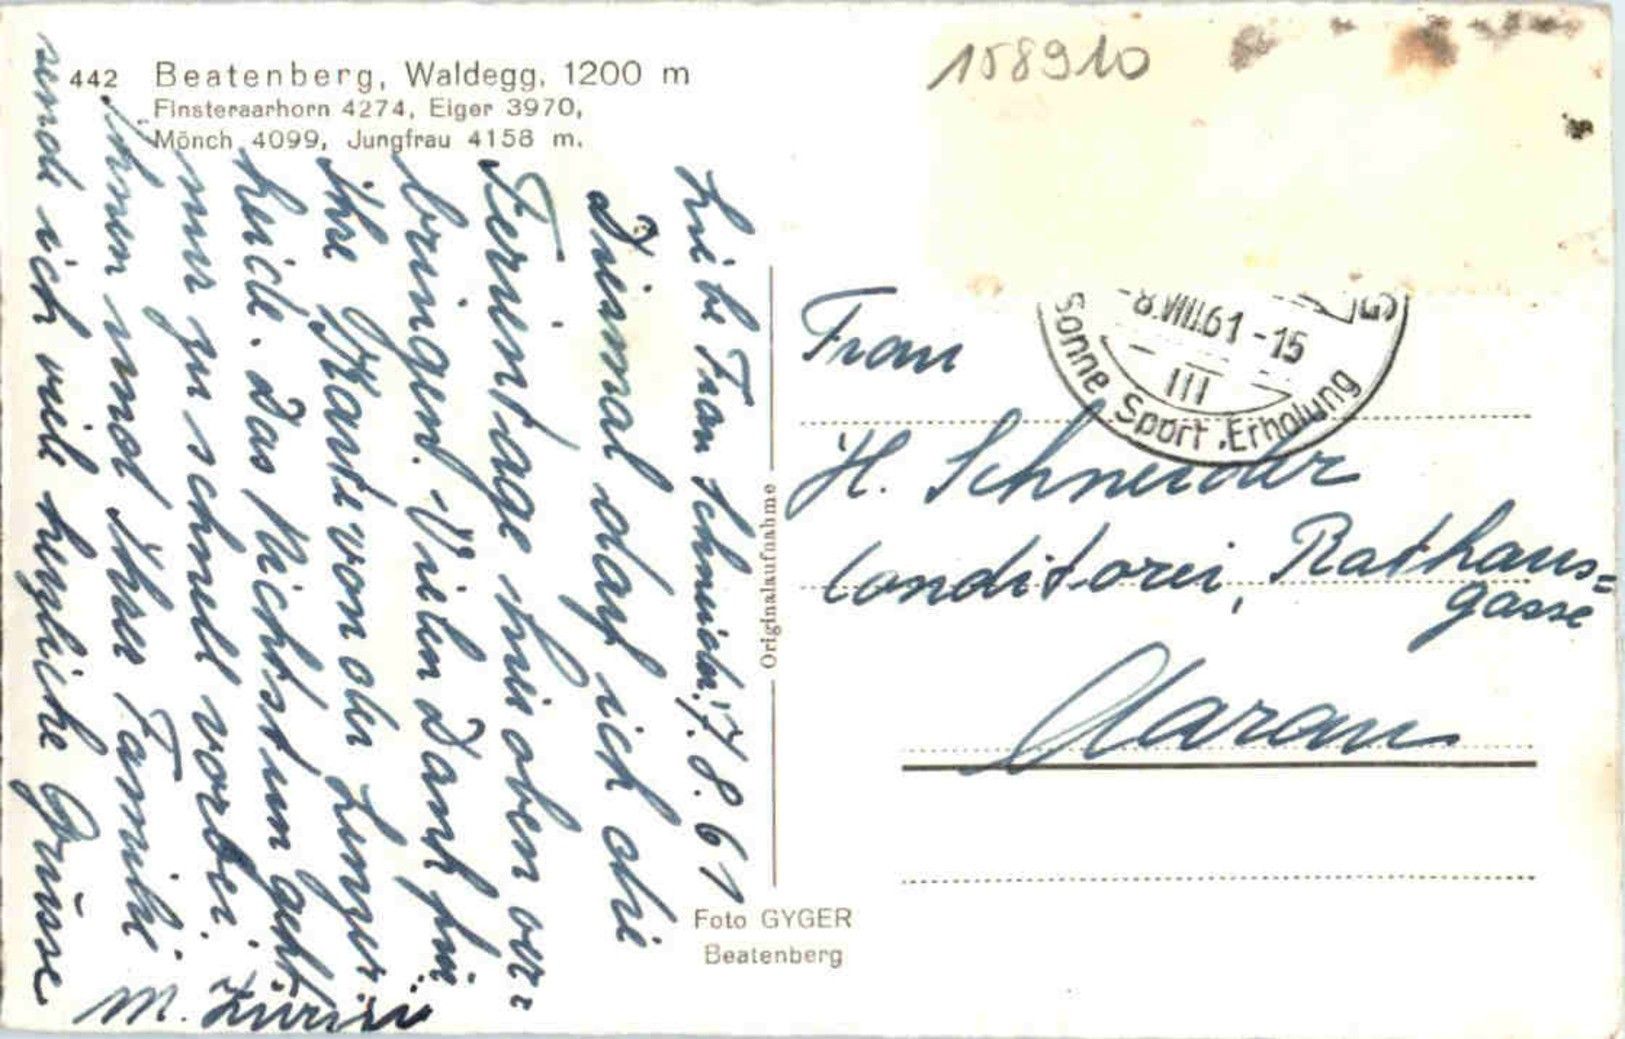 442 Beatenberg, Waldegg, 1200 m
Finsteraarhorn 4274, Eiger 3970,
Mönch 4099, Jungfrau 4158 m.
Liebe Frau Schneider! 7.8.61
Diesmal darf ich die
Ferientage hier oben ver=
bringen. Vielen Dank für
Ihre Karte von der Lenzer
heide. Das Nichtstun geht
nur zu schnell vorbei.
Ihnen und Ihrer Familie
sende ich viele herzliche Grüsse
M.
Originalaufnahme
Foto GYGER
Beatenberg
158910
-8.VIII.61-15
III
Sonne.Sport.Erholung
Frau
H. Schneider
Conditorei, Rathaus=
gasse
Aarau